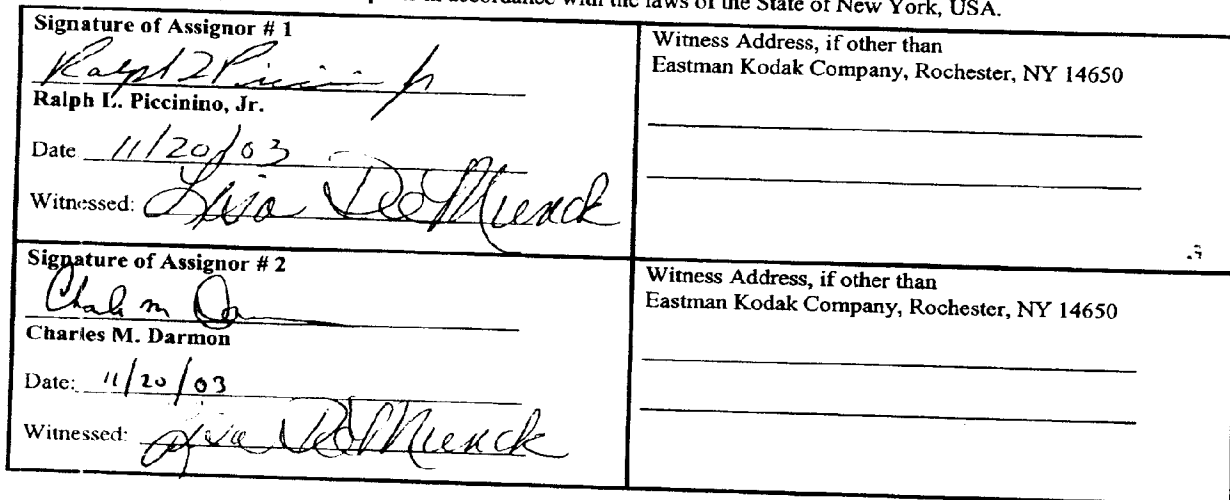 in accordance with the laws of the State of New York, USA.
Signature of Assignor # 1
Ralph L Piccinino Jr
Ralph L. Piccinino, Jr.
Date 11/20/03
Witnessed: Lisa DeMuenck
Witness Address, if other than
Eastman Kodak Company, Rochester, NY 14650
Signature of Assignor # 2
Charles M Darmon
Charles M. Darmon
Date: 11/20/03
Witnessed: Lisa DeMuenck
Witness Address, if other than
Eastman Kodak Company, Rochester, NY 14650